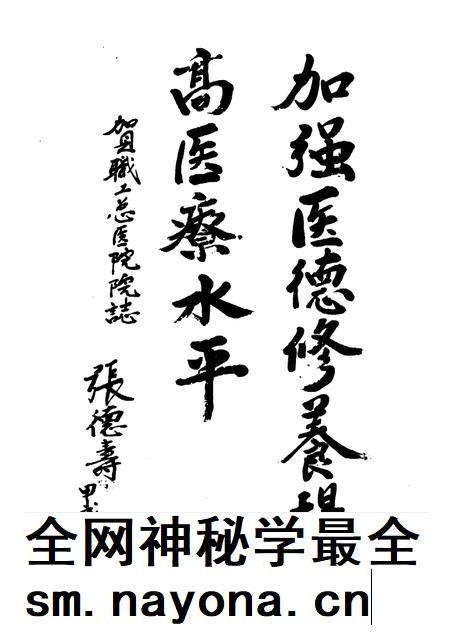 加强医德修養提
高医療水平
賀職工总医院院誌
張德壽 甲
全网神秘学最全
sm.nayona.cn